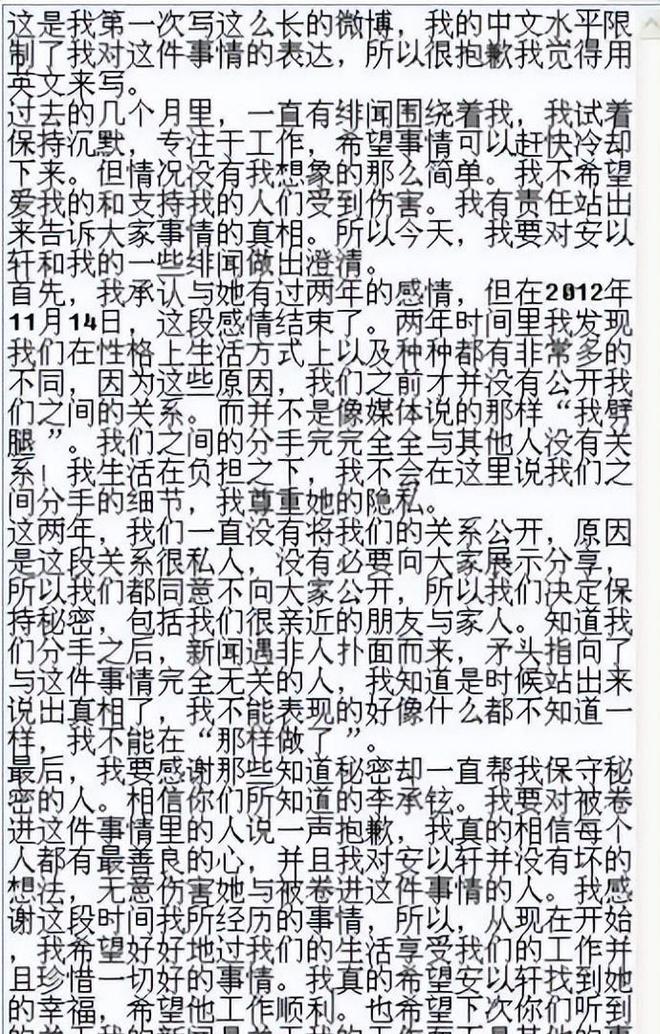 这是我第一次写这么长的微博，我的中文水平限
制了我对这件事情的表达，所以很抱歉我觉得用
英文来写。
过去的几个月里，一直有绯闻围绕着我，我试着
保持沉默，专注于工作，希望事情可以赶快冷却
下来。但情况没有我想象的那么简单。我不希望
爱我的和支持我的人们受到伤害。我有责任站出
来告诉大家事情的真相。所以今天，我要对安以
轩和我的一些绯闻做出澄清。
首先，我承认与她有过两年的感情，但在2012年
11月14日，这段感情结束了。两年时间里我发现
我们在性格上生活方式上以及种种都有非常多的
不同，因为这些原因，我们之前才并没有公开我
们之间的关系。而并不是像媒体说的那样“我劈
腿”。我们之间的分手完完全全与其他人没有关
系！我生活在负担之下，我不会在这里说我们之
间分手的细节，我尊重她的隐私。
这两年，我们一直没有将我们的关系公开，原因
是这段关系很私人，没有必要向大家展示分享，
所以我们都同意不向大家公开，所以我们决定保
持秘密，包括我们很亲近的朋友与家人。知道我
们分手之后，新闻遇非人扑面而来，矛头指向了
与这件事情完全无关的人，我知道是时候站出来
说出真相了，我不能表现的好像什么都不知道一
样，我不能在“那样做了”。
最后，我要感谢那些知道秘密却一直帮我保守秘
密的人。相信你们所知道的李承铉。我要对被卷
进这件事情里的人说一声抱歉，我真的相信每个
人都有最善良的心，并且我对安以轩并没有坏的
想法，无意伤害她与被卷进这件事情的人。我感
谢这段时间我所经历的事情，所以，从现在开始
，我希望好好地过我们的生活享受我们的工作并
且珍惜一切好的事情。我真的希望安以轩找到她
的幸福，希望他工作顺利。也希望下次你们听到